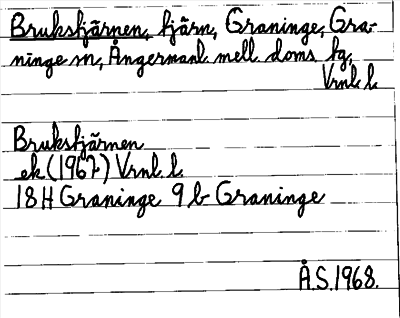 Brukstjärnen, tjärn, Graninge, Gra-
ninge sn, Ångermanl. mell. doms. bg,
Vrnl. l.
Brukstjärnen
ek (1967) Vrnl. l.
18H Graninge 9 b Graninge
Å.S. 1968.